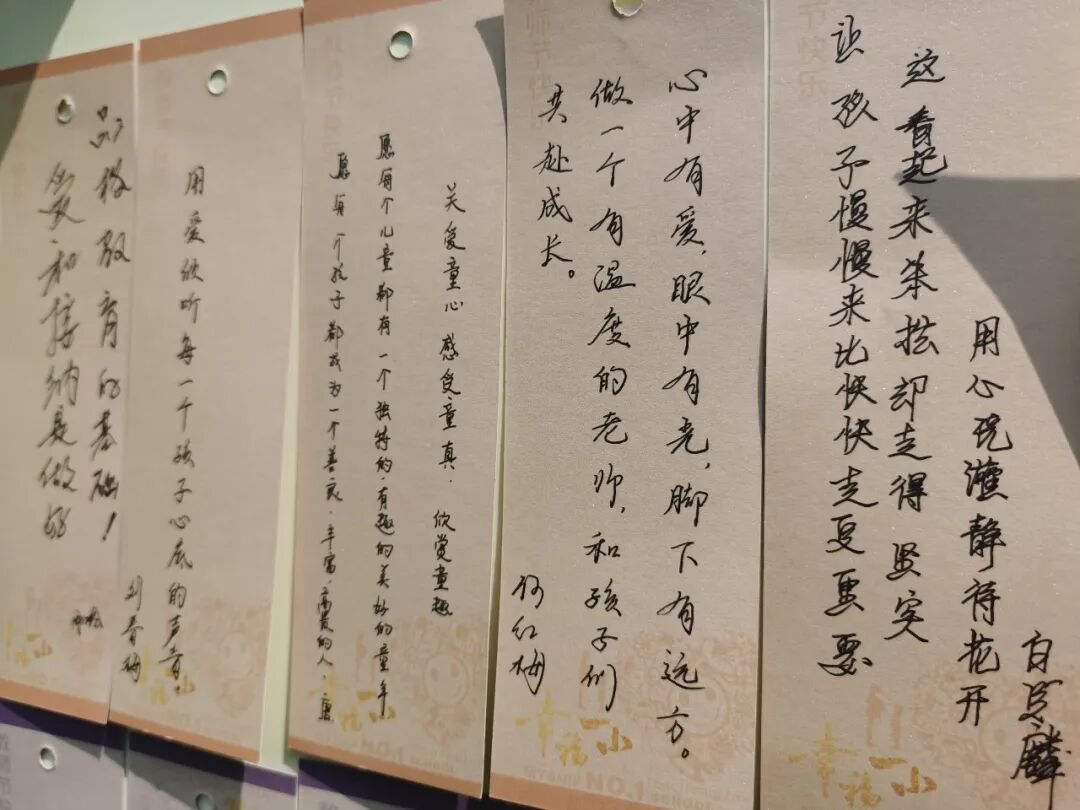 爱和接纳是做好
品格教育的基础！
用爱倾听每一个孩子心底的声音。
刘春梅
关爱童心 感受童真. 欣赏童趣
愿每个儿童都有一个独特的.有趣的美妙的童年
愿每一个孩子都成为一个善良.丰富.高贵的人.
心中有爱，眼中有光，脚下有远方。
做一个有温度的老师，和孩子们
共赴成长。
何红梅
师节快
幸福一小
NO.1
让孩子慢慢来比快快走更重要
这看起来笨拙却走得坚实
用心浇灌静待花开
节快乐
幸福一小
NO.1